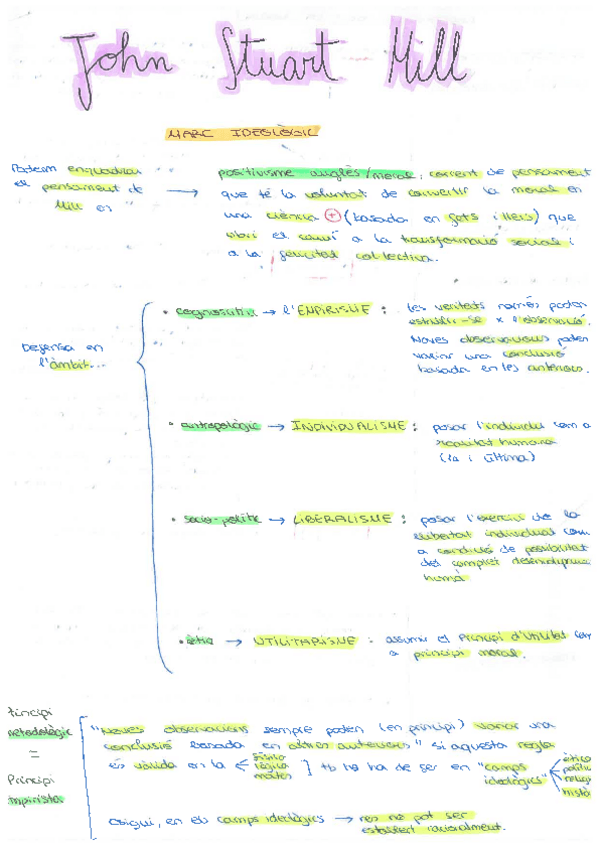 John Stuart Mill
MARC IDEOLÒGIC
Podem enquadrar
el pensament de
Mill en →
positivisme anglès/moral: corrent de pensament
que té la voluntat de convertir la moral en
una ciència + (basada en fets i lleis) que
obri el camí a la transformació social i
a la felicitat col·lectiva.
Defensa en
l'àmbit...
• cognoscitiu → l'EMPIRISME :
les veritats només poden
establir-se x l'observació.
Noves observacions poden
variar una conclusió
basada en les anteriors.
• antropològic → INDIVIDUALISME :
posar l'individu com a
realitat humana
(1a i última)
• socio-polític → LIBERALISME :
posar l'exercici de la
llibertat individual com
a condició de possibilitat
del complet desenvolupament
humà
• ètic → UTILITARISME : assumir el Principi d'Utilitat com
a principi moral.
rincipi
metodològic
=
Principi
mpirista
"Noves observacions sempre poden (en principi) variar una
conclusió basada en altres anteriors" si aquesta regla
és vàlida en la < física lògica mates ] tb ho ha de ser en "camps
ideològics" < ètica polític religi histò
O sigui, en els camps ideològics → res no pot ser
establert racionalment.